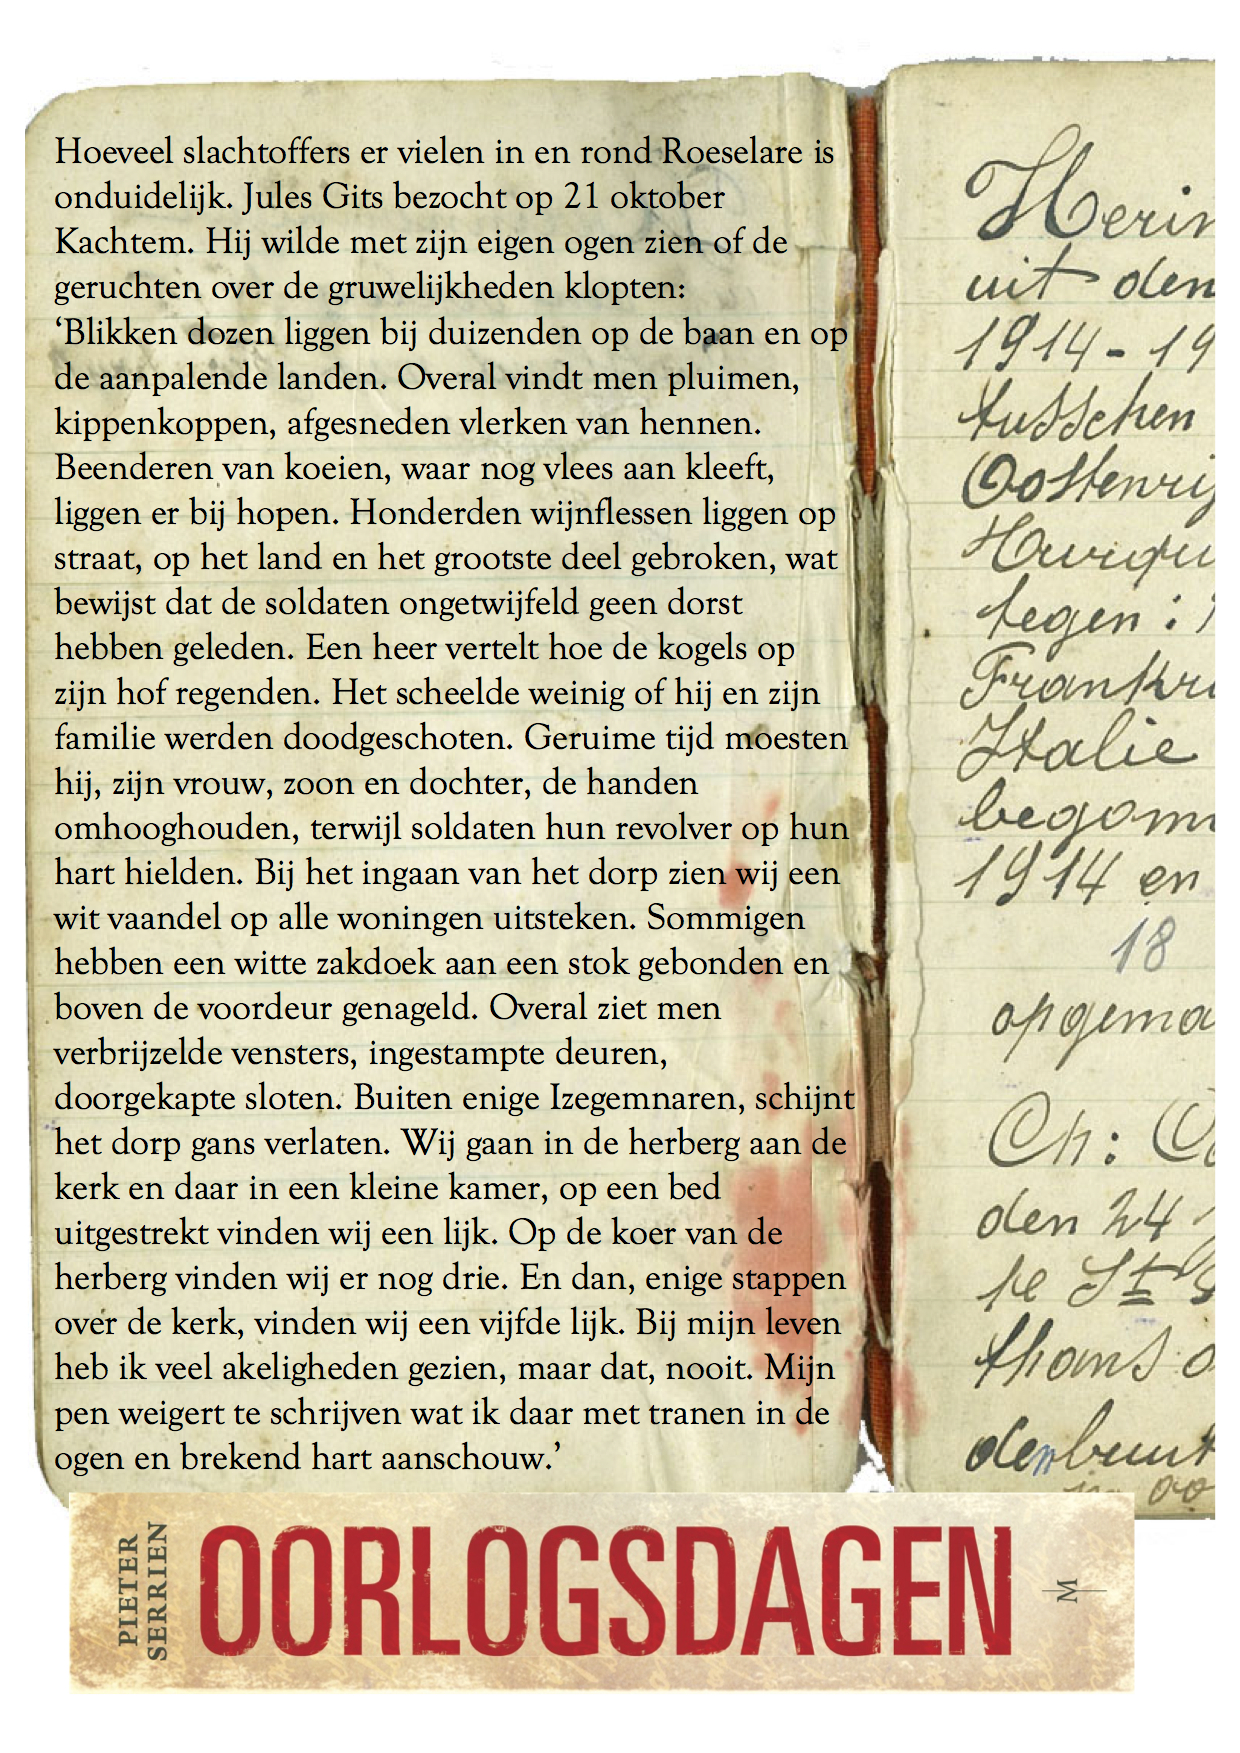 Hoeveel slachtoffers er vielen in en rond Roeselare is
onduidelijk. Jules Gits bezocht op 21 oktober
Kachtem. Hij wilde met zijn eigen ogen zien of de
geruchten over de gruwelijkheden klopten:
‘Blikken dozen liggen bij duizenden op de baan en op
de aanpalende landen. Overal vindt men pluimen,
kippenkoppen, afgesneden vlerken van hennen.
Beenderen van koeien, waar nog vlees aan kleeft,
liggen er bij hopen. Honderden wijnflessen liggen op
straat, op het land en het grootste deel gebroken, wat
bewijst dat de soldaten ongetwijfeld geen dorst
hebben geleden. Een heer vertelt hoe de kogels op
zijn hof regenden. Het scheelde weinig of hij en zijn
familie werden doodgeschoten. Geruime tijd moesten
hij, zijn vrouw, zoon en dochter, de handen
omhooghouden, terwijl soldaten hun revolver op hun
hart hielden. Bij het ingaan van het dorp zien wij een
wit vaandel op alle woningen uitsteken. Sommigen
hebben een witte zakdoek aan een stok gebonden en
boven de voordeur genageld. Overal ziet men
verbrijzelde vensters, ingestampte deuren,
doorgekapte sloten. Buiten enige Izegemnaren, schijnt
het dorp gans verlaten. Wij gaan in de herberg aan de
kerk en daar in een kleine kamer, op een bed
uitgestrekt vinden wij een lijk. Op de koer van de
herberg vinden wij er nog drie. En dan, enige stappen
over de kerk, vinden wij een vijfde lijk. Bij mijn leven
heb ik veel akeligheden gezien, maar dat, nooit. Mijn
pen weigert te schrijven wat ik daar met tranen in de
ogen en brekend hart aanschouw.’
Herin
uit den
1914-19
tusschen
Oostenrij
tegen:
Frankri
Italie
begonn
1914 en
18
opgema
Ch:
den 24
St
thans
PIETER
SERRIEN
OORLOGSDAGEN
M